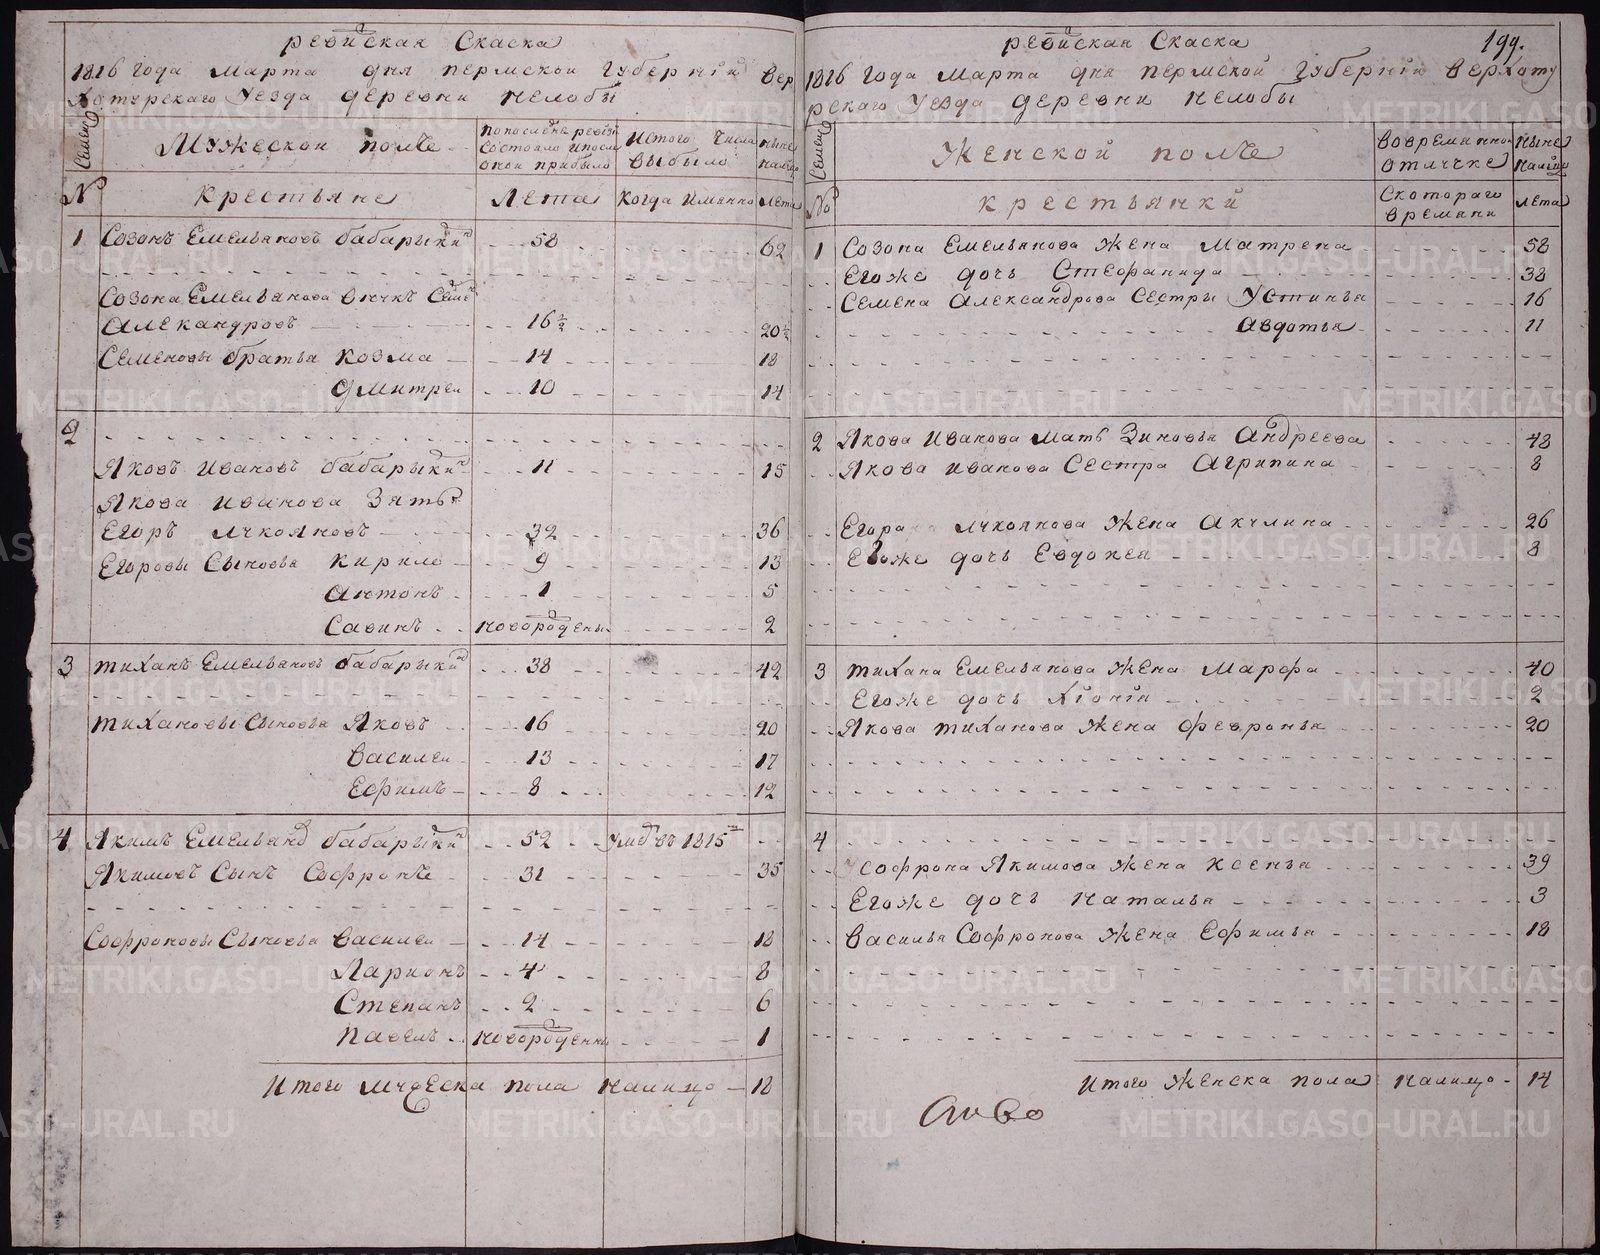 ревизская Скаска
1816 года марта дня пермской губернии вер
Хотурскаго уезда деревни Челобы
Семей
Мужеской полъ
По последней ревизии Состояло и после оной прибыло
Изтого числа выбыло
ныне налицо
№
крестьяне
Лета
Когда имянно
лета
1 Созонъ Емельяновъ бабарыкин 58 62
Созона Емельянова внукъ Семен
Александровъ 16½ 20½
Семеновы братья Козма 14 18
Дмитреи 10 14
2
Яковъ Ивановъ бабарыкин 11 15
Якова Иванова Зять
Егоръ лукояновъ 32 36
Егоровы Сыновья Кирило 9 13
Антонъ 1 5
Савинъ новорожденъ 2
3 тиханъ Емельяновъ бабарыкин 38 42
тихановы Сыновья Яковъ 16 20
Василеи 13 17
Ефимъ 8 12
4 Якимъ Емельянов бабарыкин 52 умре въ 1815
Якимовъ Сынъ Софронъ 31 35
Софроновы Сыновья Василеи 14 18
Ларионъ 4 8
Степанъ 2 6
Павелъ новорожденны 1
Итого мужеска пола налицо 18
199.
ревизская Скаска
1816 года марта дня пермской губернии верхоту
рскаго уезда деревни Челобы
Семей
Женской полъ
во временной отлучке
ныне налицо
№
крестьянки
Скотораго времени
лета
1 Созона Емельянова жена Матрена 58
Егоже дочь Стефанида 38
Семена Александрова Сестры Устинья 16
Авдотья 11
2 Якова Иванова мать Зиновья Андреева 48
Якова Иванова Сестра Агрипина 8
Егора лукоянова жена Акулина 26
Егоже дочь Евдокея 8
3 тихана Емельянова жена Марфа 40
Егоже дочь Хіонія 2
Якова тиханова жена Февронья 20
4
Софрона Якимова жена Ксенья 39
Егоже дочь Наталья 3
Василья Софронова жена Ефимья 18
Итого женска пола налицо 14
METRIKI.GASO-URAL.RU